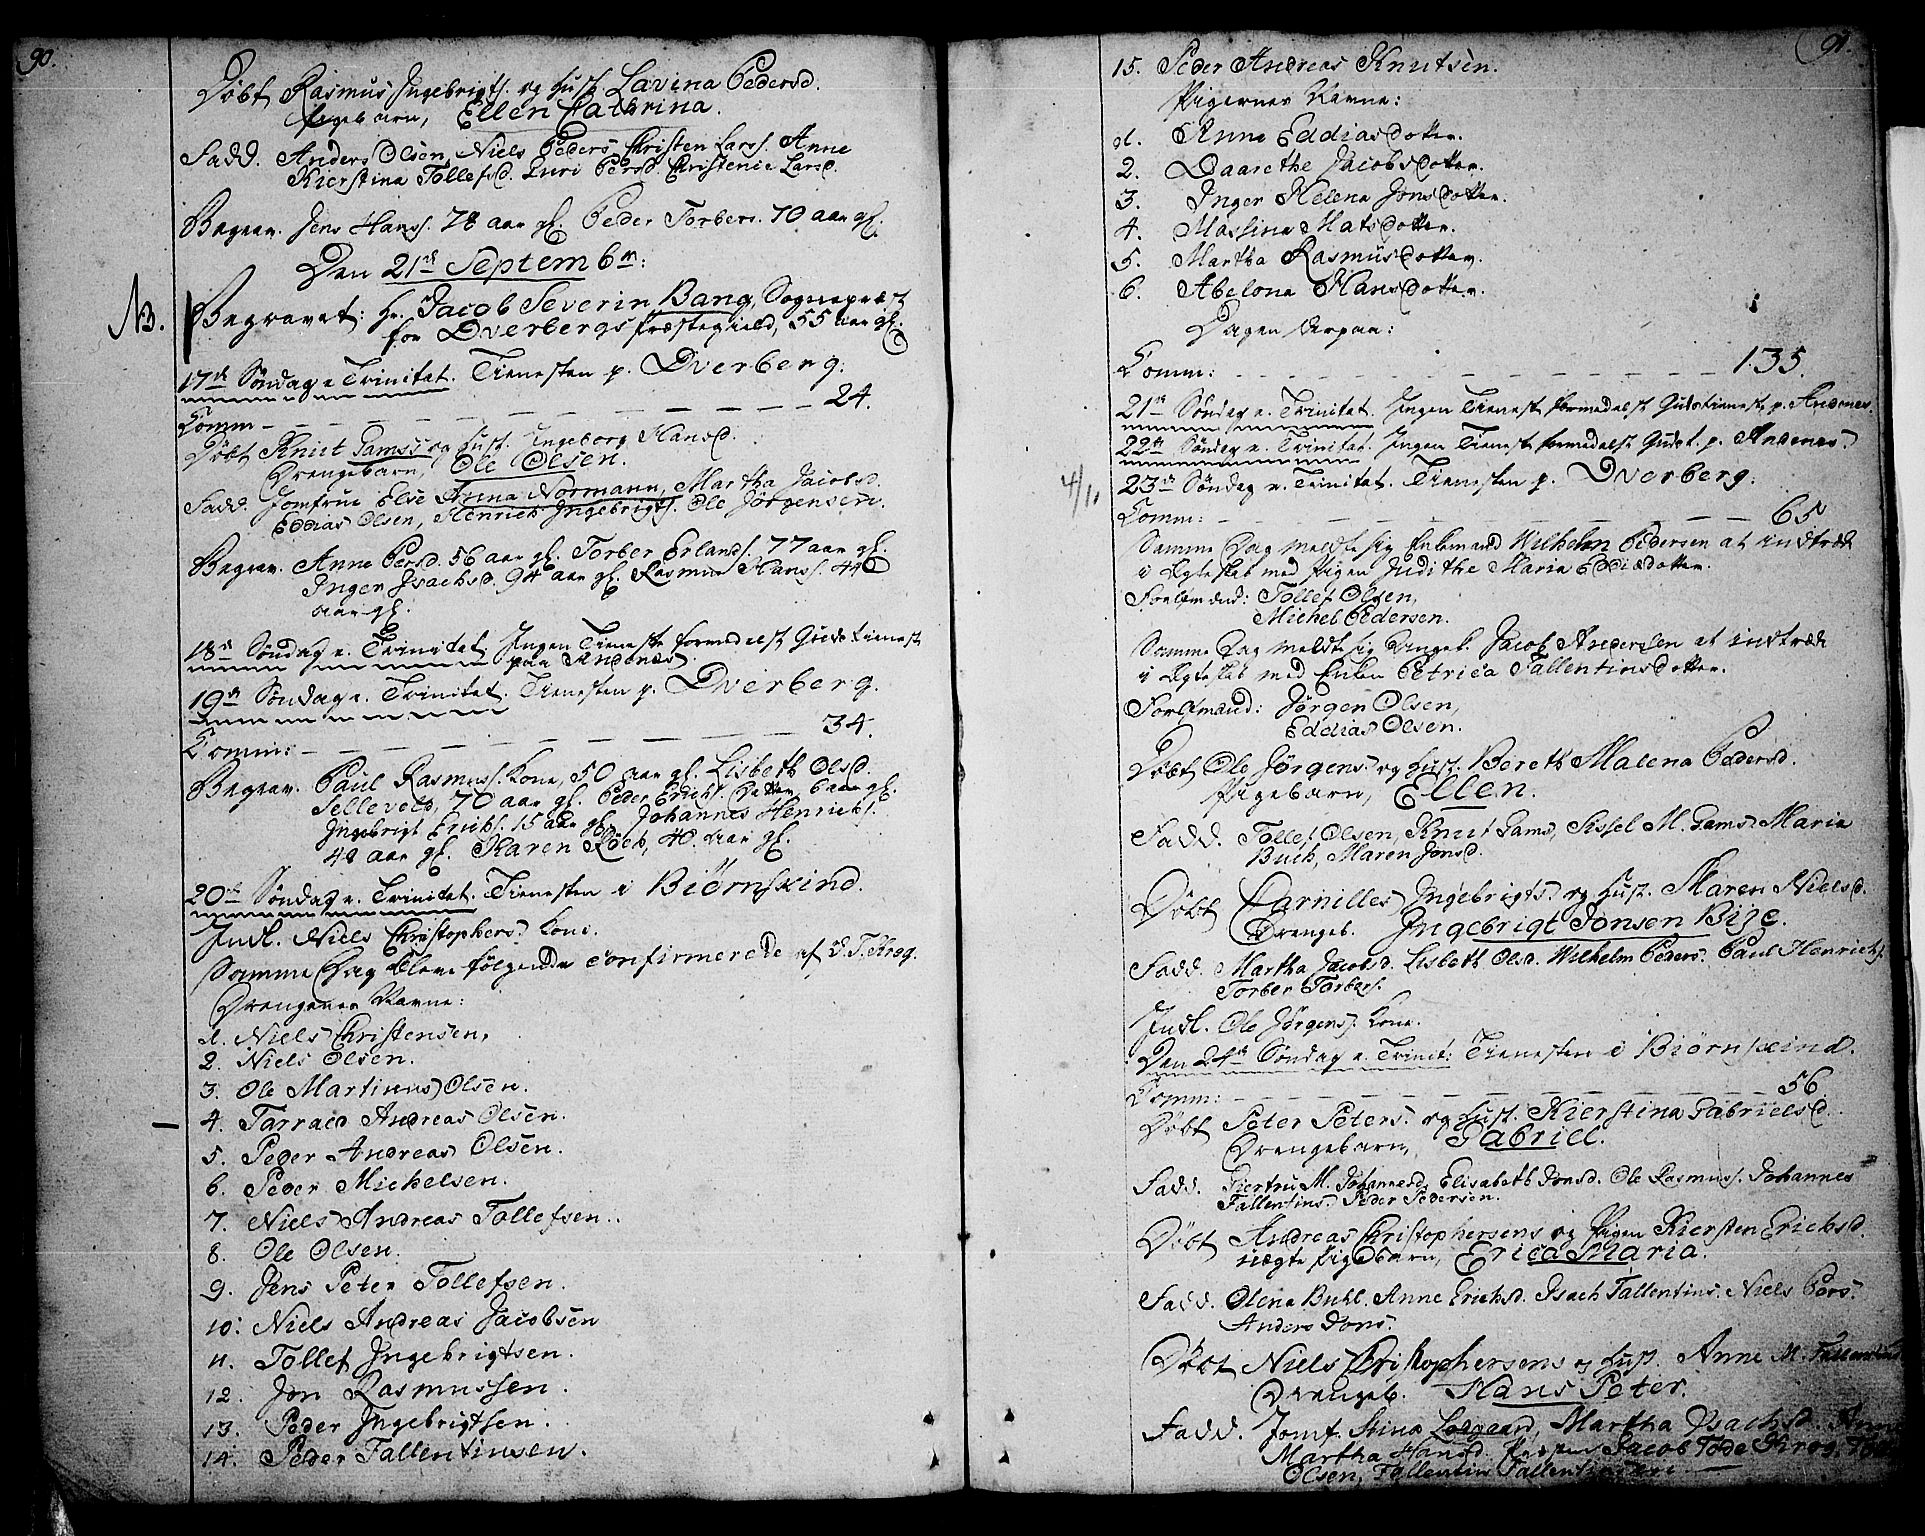 90.
Døbt Rasmus Ingebrigts. og Hust. Lavina Pedersd.
Pigebarn, Ellen Cathrina.
Fadd. Anders Olsen, Niels Peders. Christen Larss. Anne
Kierstina Tollefsd. Guri Persd. Christenie Larsd.
Begrav. Jens Hanss. 78 aar gl. Peder Torbers. 70 aar gl.
Den 21de Septembr:
NB. Begravet: Hr. Jacob Severin Bang, Sognepræst
for Dverbergs Præstegield, 55 aar gl.
17de Søndag e. Trinitat. Tienesten p. Dverberg:
Comm - - - 24.
Døbt Knut Gamss og Hust. Ingeborg Hansd.
Drengebarn, Ole Olsen.
Fadd. Jomfrue Else Anna Normann, Martha Jacobsd.
Eddias Olsen, Henrich Ingebrigts. Ole Jørgensen.
Begrav. Anne Persd. 56 aar gl. Torber Erlands. 77 aar gl.
Inger Isachsd. 94 aar gl. Rasmus Hanss. 44
aar gl.
18de Søndag e. Trinitat. Ingen Tieneste formedelst Gudstieneste
paa Andenæs.
19de Søndag e. Trinitat. Tienesten p. Dverberg.
Comm: - - - 34.
Begrav. Paul Rasmuss. Kone, 50 aar gl. Lisbeth Olsd.
Sellevold, 70 aar gl. Peder Erichs. Datter 6 aar gl.
Ingebrigt Erichs. 15 aar gl. Johannes Henrichs.
48 aar gl. Karen Röch, 40. aar gl.
20de Søndag e. Trinitat. Tienesten i Biørnskind.
Indl. Niels Christophers. Kone.
Samme Dag bleve følgende confirmerede af J. T. Krog.
Drengenes Navne:
1. Niels Christensen,
2. Niels Olsen.
3. Ole Martinus Olsen.
4. Tarrald Andreas Olsen.
5. Peder Andreas Olsen.
6. Peder Michelsen.
7. Niels Andreas Tollefsen.
8. Ole Olsen.
9. Jens Peter Tollefsen.
10. Niels Andreas Jacobsen
11. Tollef Ingebrigtsen.
12. Jon Rasmussen.
13. Peder Ingebrigtsen.
14. Peder Fallentinsen.
91.
15. Peder Andreas Knutsen.
Pigernes Navne:
1. Anne Eddiasdotter.
2. Daarethe Jacobsdotter.
3. Inger Helena Jonsdotter.
4. Massina Matsdotter.
5. Martha Rasmusdotter.
6. Abelona Hansdotter.
Dagen derpaa:
Comm: - - - 135.
21de Søndag e. Trinitat. Ingen Tieneste formedelst Gudstieneste p. Andenes.
22de Søndag e. Trinitat. Ingen Tieneste formedelst Gudst. p. Andenæs.
4/11 23de Søndag e. Trinitat. Tienesten p. Dverberg:
Comm: - - - 65
Samme Dag meldte sig Enkemand Wilhelm Pedersen at indtræde
i Egteskab med Pigen Judithe Maria Eddiædotter.
Forlovmænd: Tollef Olsen,
Michel Pedersen.
Samme Dag meldte sig Ungk. Jacob Andersen at indtræde
i Egteskab med Enken Petrica Fallentinsdotter.
Forlovmænd: Jørgen Olsen,
Eddias Olsen.
Døbt Ole Jørgens. og Hust. Bereth Malena Pedersd.
Pigebarn, Ellen.
Fadd. Tollef Olsen, Knut Gams, Sissel M. Gams. Maria
Buch, Maren Jonsd.
Døbt Carnilles Ingebrigts. og Hust. Maren Nielsd.
Drengeb. Ingebrigt Jonsen Bige.
Fadd. Martha Jacobsd. Lisbeth Olsd. Wilhelm Peders. Paul Henrichs.
Torber Torbers.
Indl. Ole Jørgens. Kone.
Den 24de Søndag e. Trinit: Tienesten i Biørnskind.
Comm: - - - 56
Døbt Peter Peters. og Hust. Kierstina Gabrielsd.
Drengebarn, Gabriel.
Fadd. Giertru M. Johannesd. Elisabeth Jonsd. Ole Rasmuss. Johannes
Fallentins. Peder Pedersen.
Døbt Andreas Christophersens og Pigen Kiersten Erichsd.
uægte Pigebarn, Erica Maria.
Fadd. Olena Buhl. Anne Erichsd. Isach Fallentins. Niels Pers.
Anders Jons.
Døbt Niels Christophersens og Hust. Anne M. Fallentins
Drengeb. Hans Peter.
Fadd. Jomf. Stina Lodgaard, Martha Isachsd. Anne
Martha Hansd. Jacob Tode Krog,
Olsen, Fallentin Fallentinsen